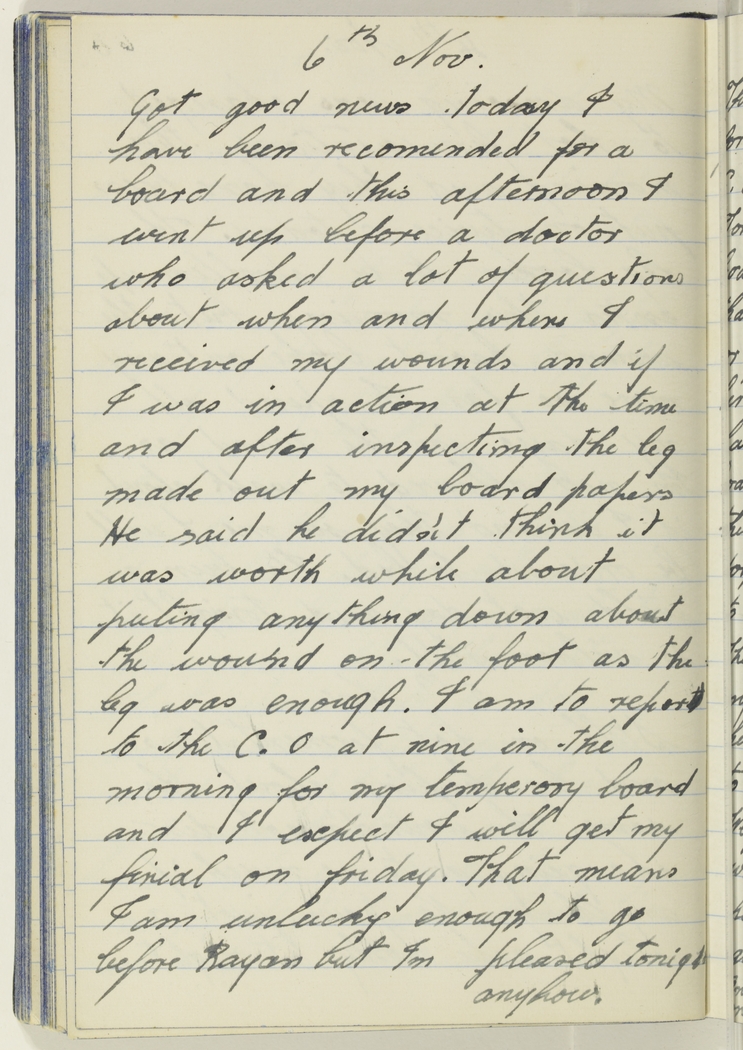 6th Nov.
Got good news today I
have been recomended for a
board and this afternoon I
went up before a doctor
who asked a lot of questions
about when and where I
received my wounds and if
I was in action at the time
and after inspecting the leg
made out my board papers
He said he did'nt think it
was worth while about
puting anything down about
the wound on the foot as the
leg was enough. I am to report
to the C.O at nine in the
morning for my temperory board
and I expect I will get my
finial on friday. That means
I am unlucky enough to go
before Rayan but Im pleased tonight
anyhow.